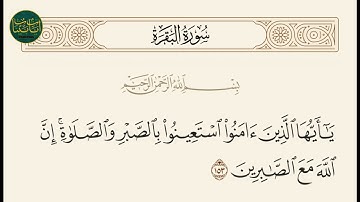 سُورَةُ البَقَرَةِ
بِسْمِ اللَّهِ الرَّحْمَٰنِ الرَّحِيمِ
يَـٰٓأَيُّهَا ٱلَّذِينَ ءَامَنُوا۟ ٱسْتَعِينُوا۟ بِٱلصَّبْرِ وَٱلصَّلَوٰةِ ۚ إِنَّ
ٱللَّهَ مَعَ ٱلصَّـٰبِرِينَ ١٥٣